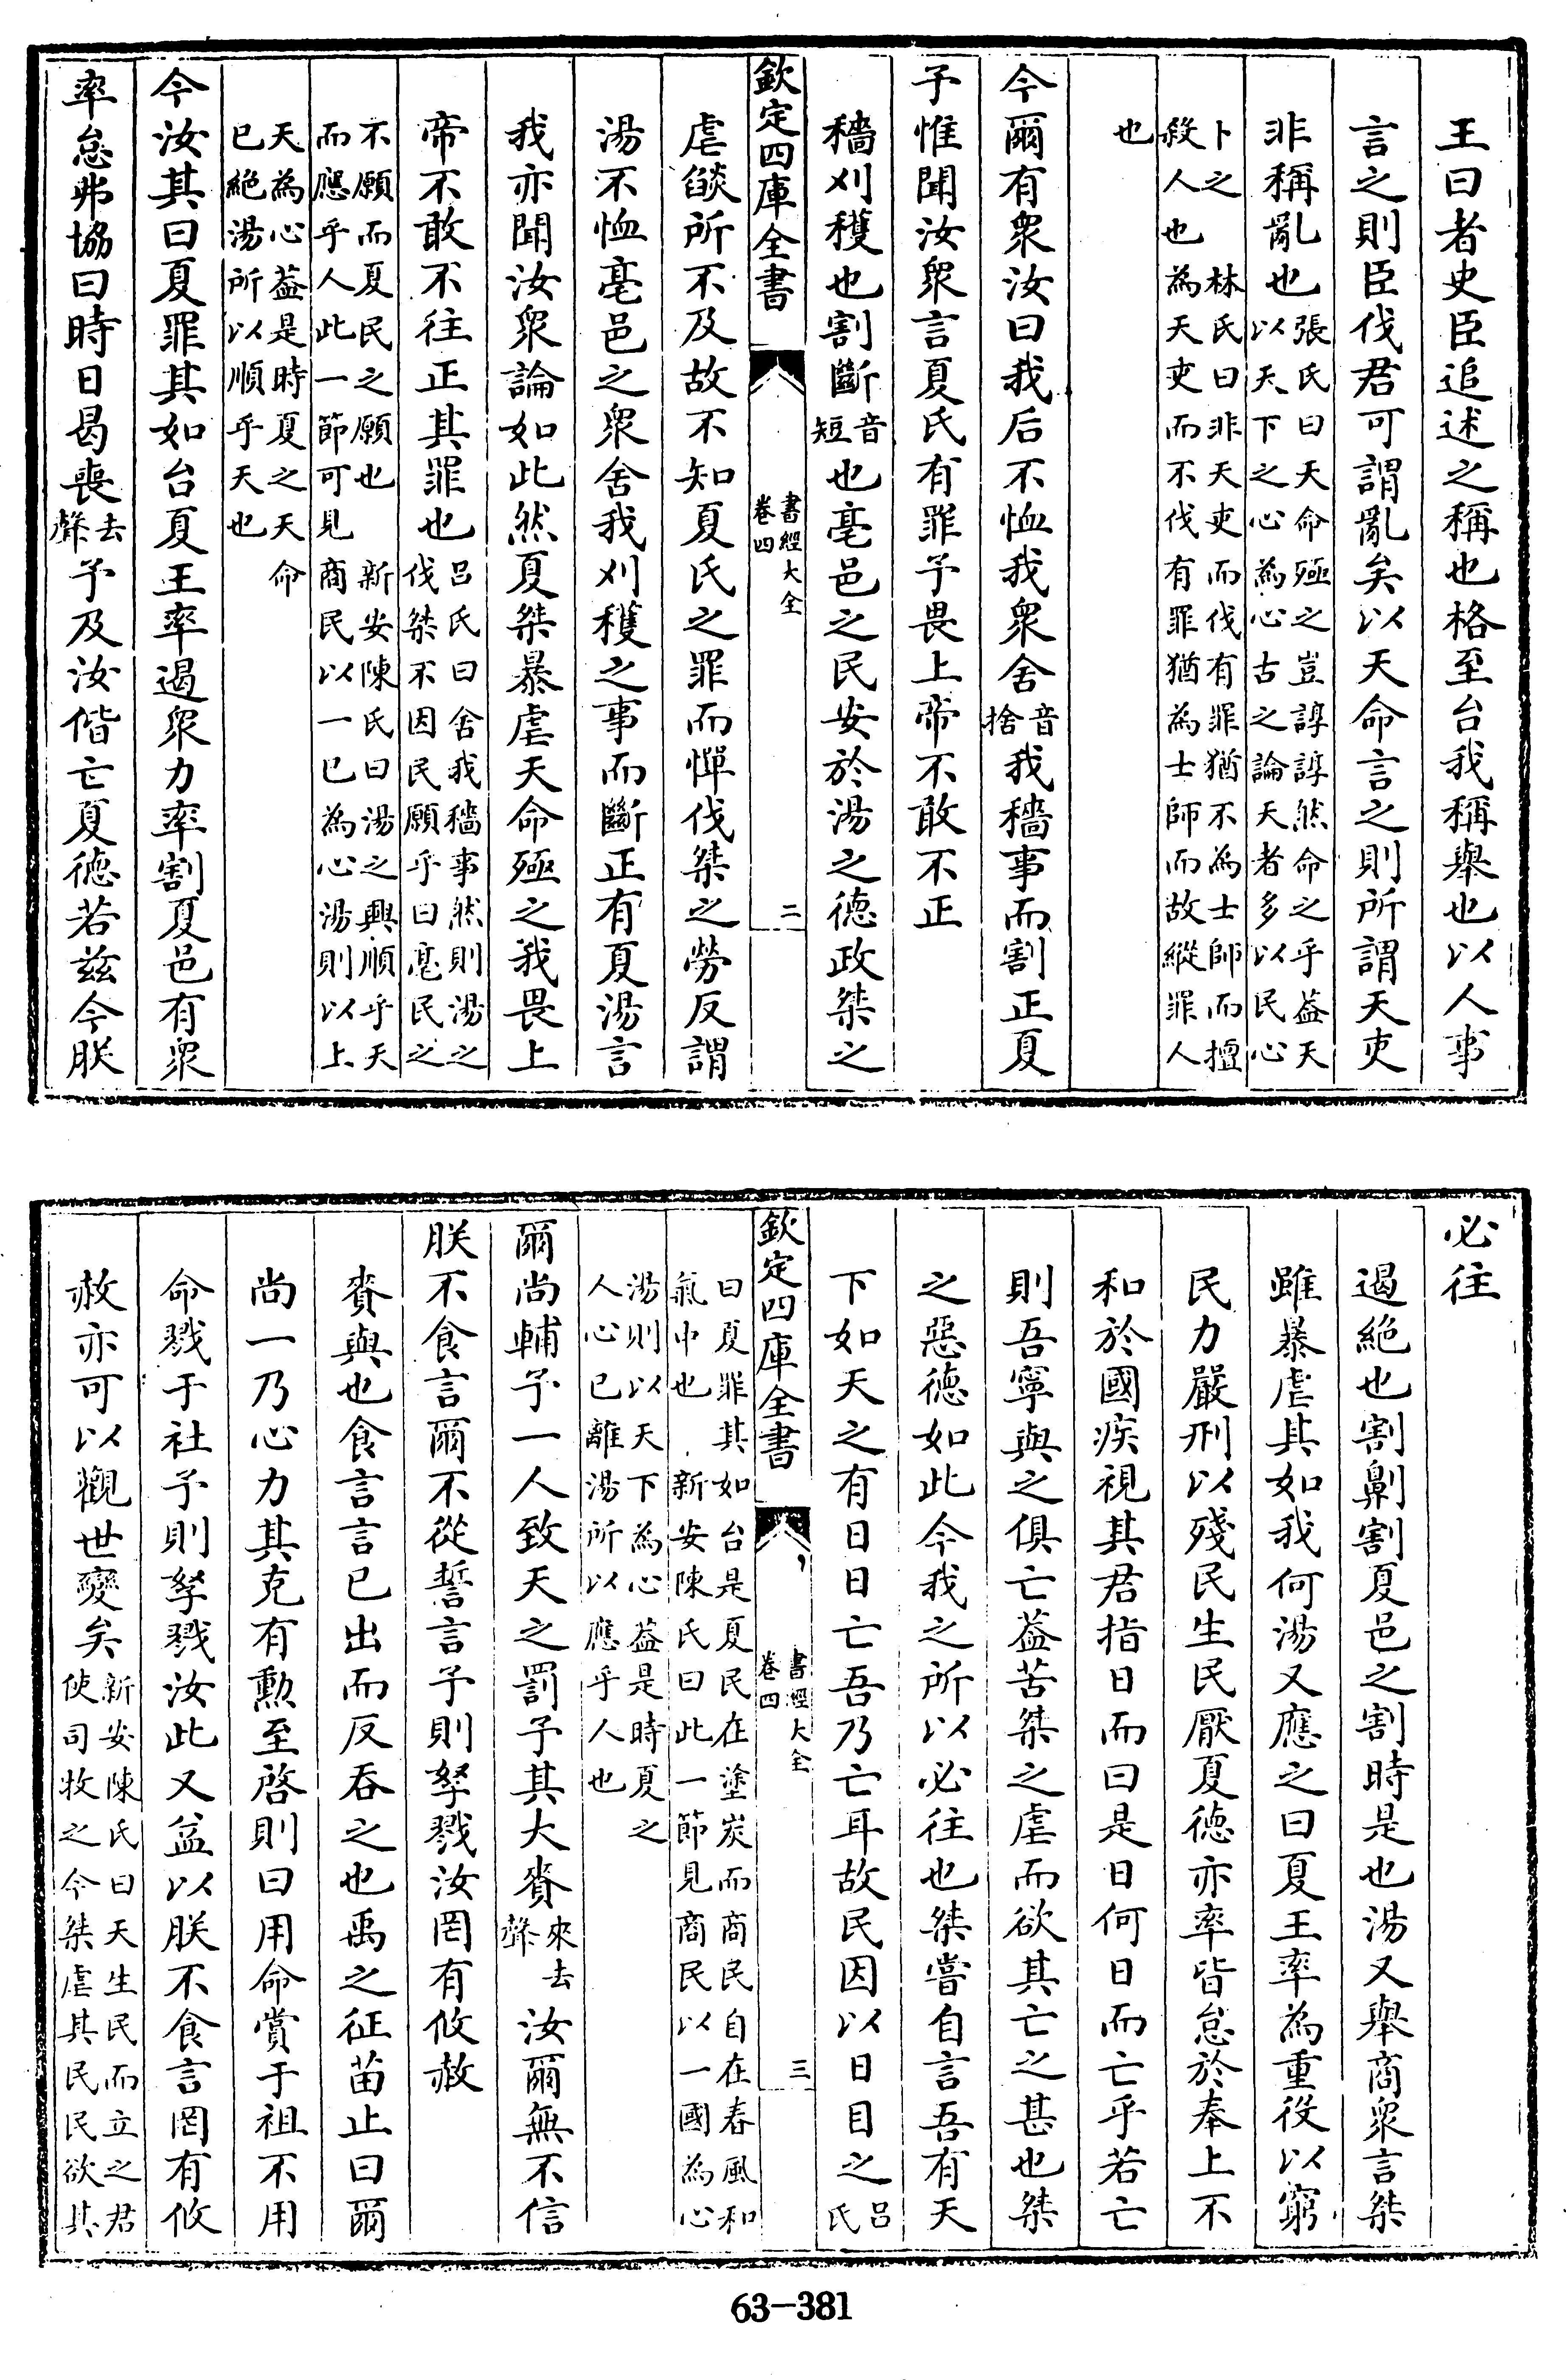 王曰者史臣追述之稱也格至台我稱舉也以人事
言之則臣伐君可謂亂矣以天命言之則所謂天吏
非稱亂也張氏曰天命殛之豈諄諄然命之乎葢天以天下之心為心古之論天者多以民心
卜之 林氏曰非天吏而伐有罪猶不為士師而擅殺人也為天吏而不伐有罪猶為士師而故縱罪人
也
今爾有衆汝曰我后不恤我衆舍音捨我穡事而割正夏
予惟聞汝衆言夏氏有罪予畏上帝不敢不正
穡刈穫也割斷音短也亳邑之民安於湯之德政桀之
欽定四庫全書 書經大全 卷四 二
虐燄所不及故不知夏氏之罪而憚伐桀之勞反謂
湯不恤亳邑之衆舍我刈穫之事而斷正有夏湯言
我亦聞汝衆論如此然夏桀暴虐天命殛之我畏上
帝不敢不往正其罪也呂氏曰舍我穡事然則湯之伐桀不因民願乎曰亳民之
不願而夏民之願也 新安陳氏曰湯之興順乎天而應乎人此一節可見商民以一已為心湯則以上
天為心葢是時夏之天命已絶湯所以順乎天也
今汝其曰夏罪其如台夏王率遏衆力率割夏邑有衆
率怠弗協曰時日曷喪去聲予及汝偕亡夏德若兹今朕
必往
遏絶也割劓割夏邑之割時是也湯又舉商衆言桀
雖暴虐其如我何湯又應之曰夏王率為重役以窮
民力嚴刑以殘民生民厭夏德亦率皆怠於奉上不
和於國疾視其君指日而曰是日何日而亡乎若亡
則吾寧與之俱亡葢苦桀之虐而欲其亡之甚也桀
之惡德如此今我之所以必往也桀嘗自言吾有天
下如天之有日日亡吾乃亡耳故民因以日目之呂氏
欽定四庫全書 書經大全 卷四 三
曰夏罪其如台是夏民在塗炭而商民自在春風和氣中也 新安陳氏曰此一節見商民以一國為心
湯則以天下為心葢是時夏之人心已離湯所以應乎人也
爾尚輔予一人致天之罰予其大賚來去聲汝爾無不信
朕不食言爾不從誓言予則孥戮汝罔有攸赦
賚與也食言言已出而反吞之也禹之征苗止曰爾
尚一乃心力其克有勲至啓則曰用命賞于祖不用
命戮于社予則孥戮汝此又益以朕不食言罔有攸
赦亦可以觀世變矣新安陳氏曰天生民而立之君使司牧之今桀虐其民民欲其
63-381